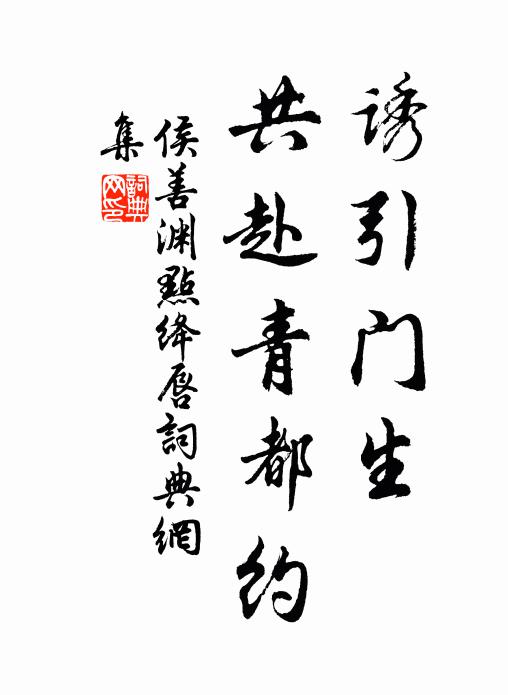 诱引门生
共赴青都约
侯善渊點绛唇詞典網
集
詞典网印